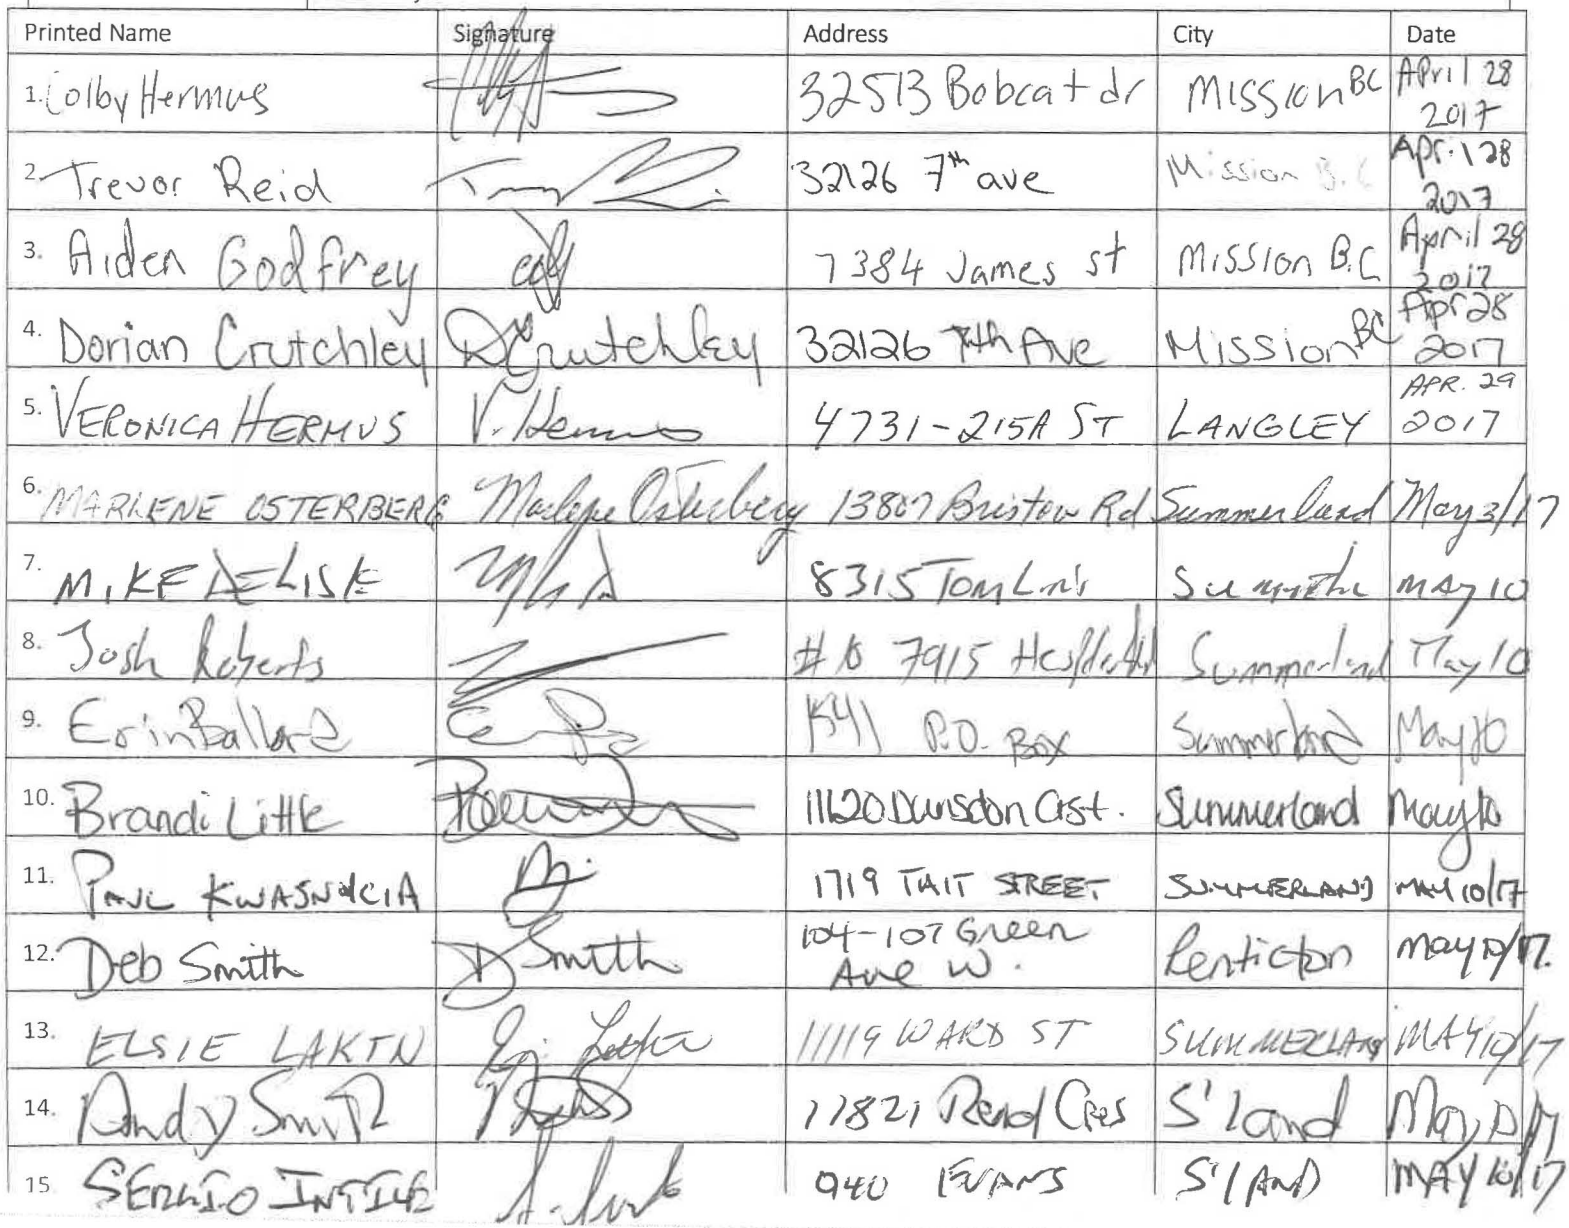 Printed Name Signature Address City Date
1. Colby Hermus 32513 Bobcat dr Mission BC April 28 2017
2. Trevor Reid 32126 7th ave Mission B.C April 28 2017
3. Aiden Godfrey 7384 James st Mission B.C April 28 2017
4. Dorian Crutchley DCrutchley 32126 7th Ave Mission BC Apr 28 2017
5. VERONICA HERMUS V. Hermus 4731-215A ST LANGLEY APR. 29 2017
6. MARLENE OSTERBERG Marlene Osterberg 13807 Bristow Rd Summerland May 3/17
7. MIKE DELISLE 8315 MAY 10
8. Josh Roberts 7915 Summerland May 10
9. Erin Ballard P.O. Box Summerland May 10
10. Brandi Little 11620 Dunsdon Crst. Summerland May 10
11. PAUL 1719 TAIT STREET SUMMERLAND MAY 10/17
12. Deb Smith D Smith 104-107 Green Ave W. Penticton May 10/17.
13. ELSIE LAKIN 11119 WARD ST SUMMERLAND MAY 10/17
14. Andy Smith 11821 Cres S'land May 10/17
15 SERGIO 940 EVANS S'LAND MAY 10/17